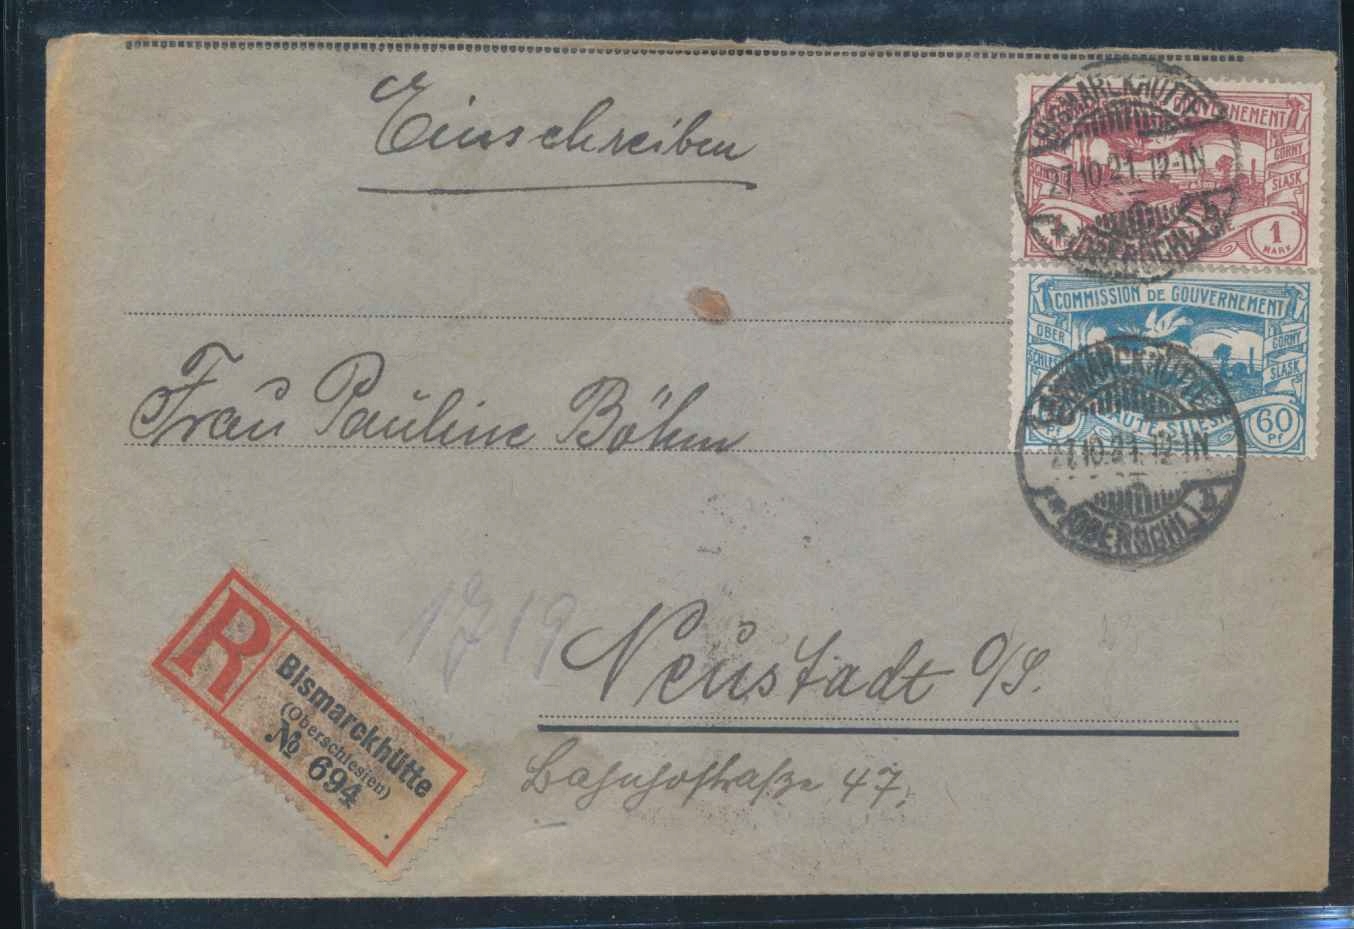 Einschreiben
COMMISSION DE GOUVERNEMENT
GORNY
SLASK
1
MARK
BISMARCKHÜTTE
27.10.21. 12-1N
* (OBERSCHL.) b
COMMISSION DE GOUVERNEMENT
OBER
SCHLES
GORNY
SLASK
HAUTE SILESIE
60
Pf
BISMARCKHÜTTE
27.10.21. 12-1N
* (OBERSCHL.) b
Frau Pauline Böhm
1719
Neustadt O/S.
Bahnhofstraße 47.
R
Bismarckhütte
(Oberschlesien)
№ 694